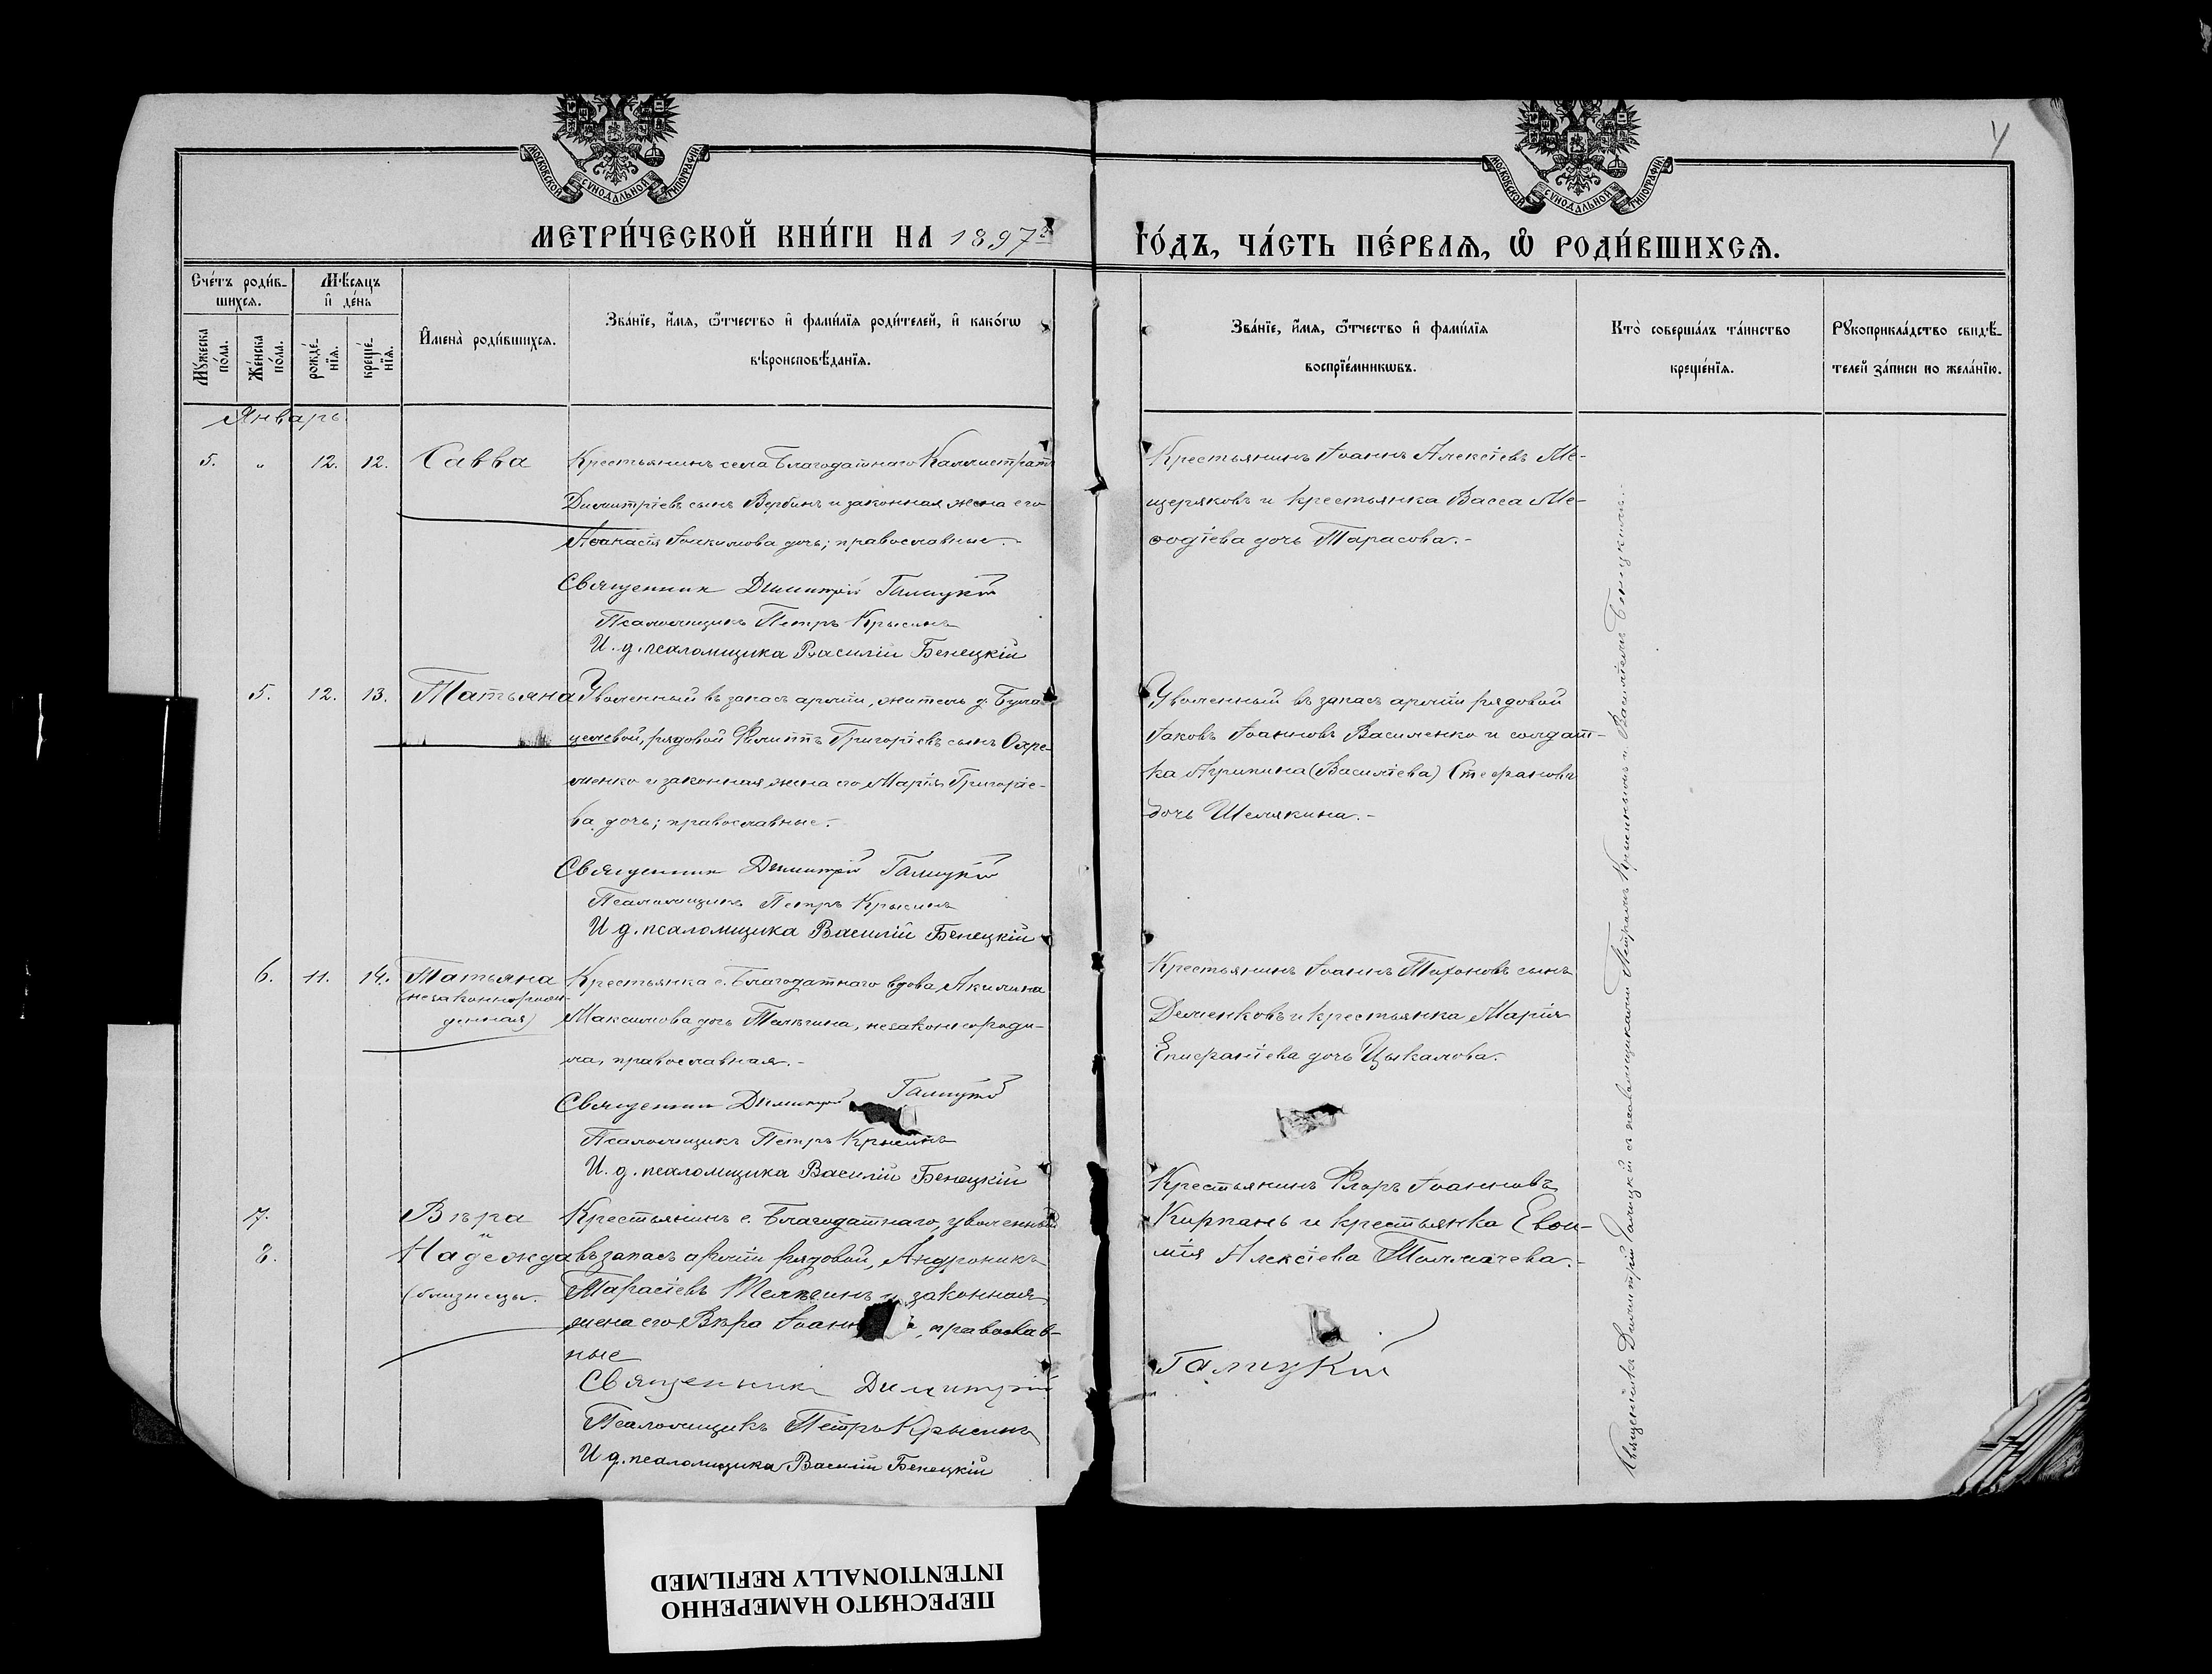 МОСКОВСКОЙ СѴНОДАЛЬНОЙ ТИПОГРАФІИ
МОСКОВСКОЙ СѴНОДАЛЬНОЙ ТИПОГРАФІИ
МЕТРИ́ЧЕСКОЙ КНИ́ГИ НА 1897 ГО́ДЪ, ЧА́СТЬ ПЕ́РВАѦ, Ѡ҆ РОДИ́ВШИХСѦ.
Сче́тъ роди́в-
шихсѧ.
Мꙋ́жеска по́ла.
Же́нска по́ла.
Мѣ́сѧцъ
и҆ де́нь
рожде́-
нїѧ.
креще́-
нїѧ.
И҆мена̀ роди́вшихсѧ.
Зва́нїе, и҆́мѧ, ѻ҆́тчество и҆ фами́лїѧ роди́телей, и҆ како́гѡ
вѣроисповѣ́данїѧ.
Зва́нїе, и҆́мѧ, ѻ҆́тчество и҆ фами́лїѧ
воспрїе́мникѡвъ.
Кто̀ соверша́лъ та́инство
креще́нїѧ.
Рꙋкоприкла́дство свидѣ́-
телей за́писи по жела́нїю.
Январь.
5. " 12. 12. Савва
Крестьянинъ села Благодатнаго Каллистратъ
Димитріевъ сынъ Вербинъ и законная жена его
Аѳанасія Іоакимова дочь; православные.-
Священник Димитрій Галицкій
Псаломщикъ Петръ Крысинъ
И. д. псаломщика Василій Бенецкій
Крестьянинъ Іоаннъ Алексіевъ Ме-
щеряковъ и крестьянка Васса Ме-
ѳодіева дочь Тарасова.-
5. 12. 13. Татьяна
Уволенный въ запасъ арміи, житель д.
рядовой Филиппъ Григоріевъ сынъ Охре-
менко и законная жена его Марія Григоріе-
ва дочь; православные.-
Священник Димитрій Галицкій
Псаломщикъ Петръ Крысинъ
И. д. псаломщика Василій Бенецкій
Уволенный въ запасъ арміи рядовой
Іаковъ Іоанновъ Василенко и солдат-
ка Агрипина (Василіева) Стефанова
дочь Шелякина.-
6. 11. 14. Татьяна
(незаконнорож-
денная)
Крестьянка с. Благодатнаго вдова Акилина
Максимова дочь Тельгина, незаконнороди-
ла, православная.-
Священник Димитрій Галицкій
Псаломщикъ Петръ Крысинъ
И. д. псаломщика Василій Бенецкій
Крестьянинъ Іоаннъ Тихоновъ сынъ
Деменковъ и крестьянка Марія
Епифаніева дочь Цыкалова.-
7. Вѣра
и
8. Надежда
(близнецы.
Крестьянинъ с. Благодатнаго, уволенный
въ запасъ арміи рядовой, Андроникъ
Тарасіевъ Тельгинъ и законная
жена его Вѣра Іоанн , православ-
ные
Священникъ Димитрій Галицкій
Псаломщикъ Петръ Крысинъ
И д. псаломщика Василій Бенецкій
Крестьянинъ Флоръ Іоанновъ
Кирпань и крестьянка Евѳи-
мія Алексіева Толмачева.-
Священникъ Димитрій Галицкій съ псаломщиками Петромъ Крысинымъ и Василіемъ Бенецкимъ.
ПЕРЕСНЯТО НАМЕРЕННО
INTENTIONALLY REFILMED